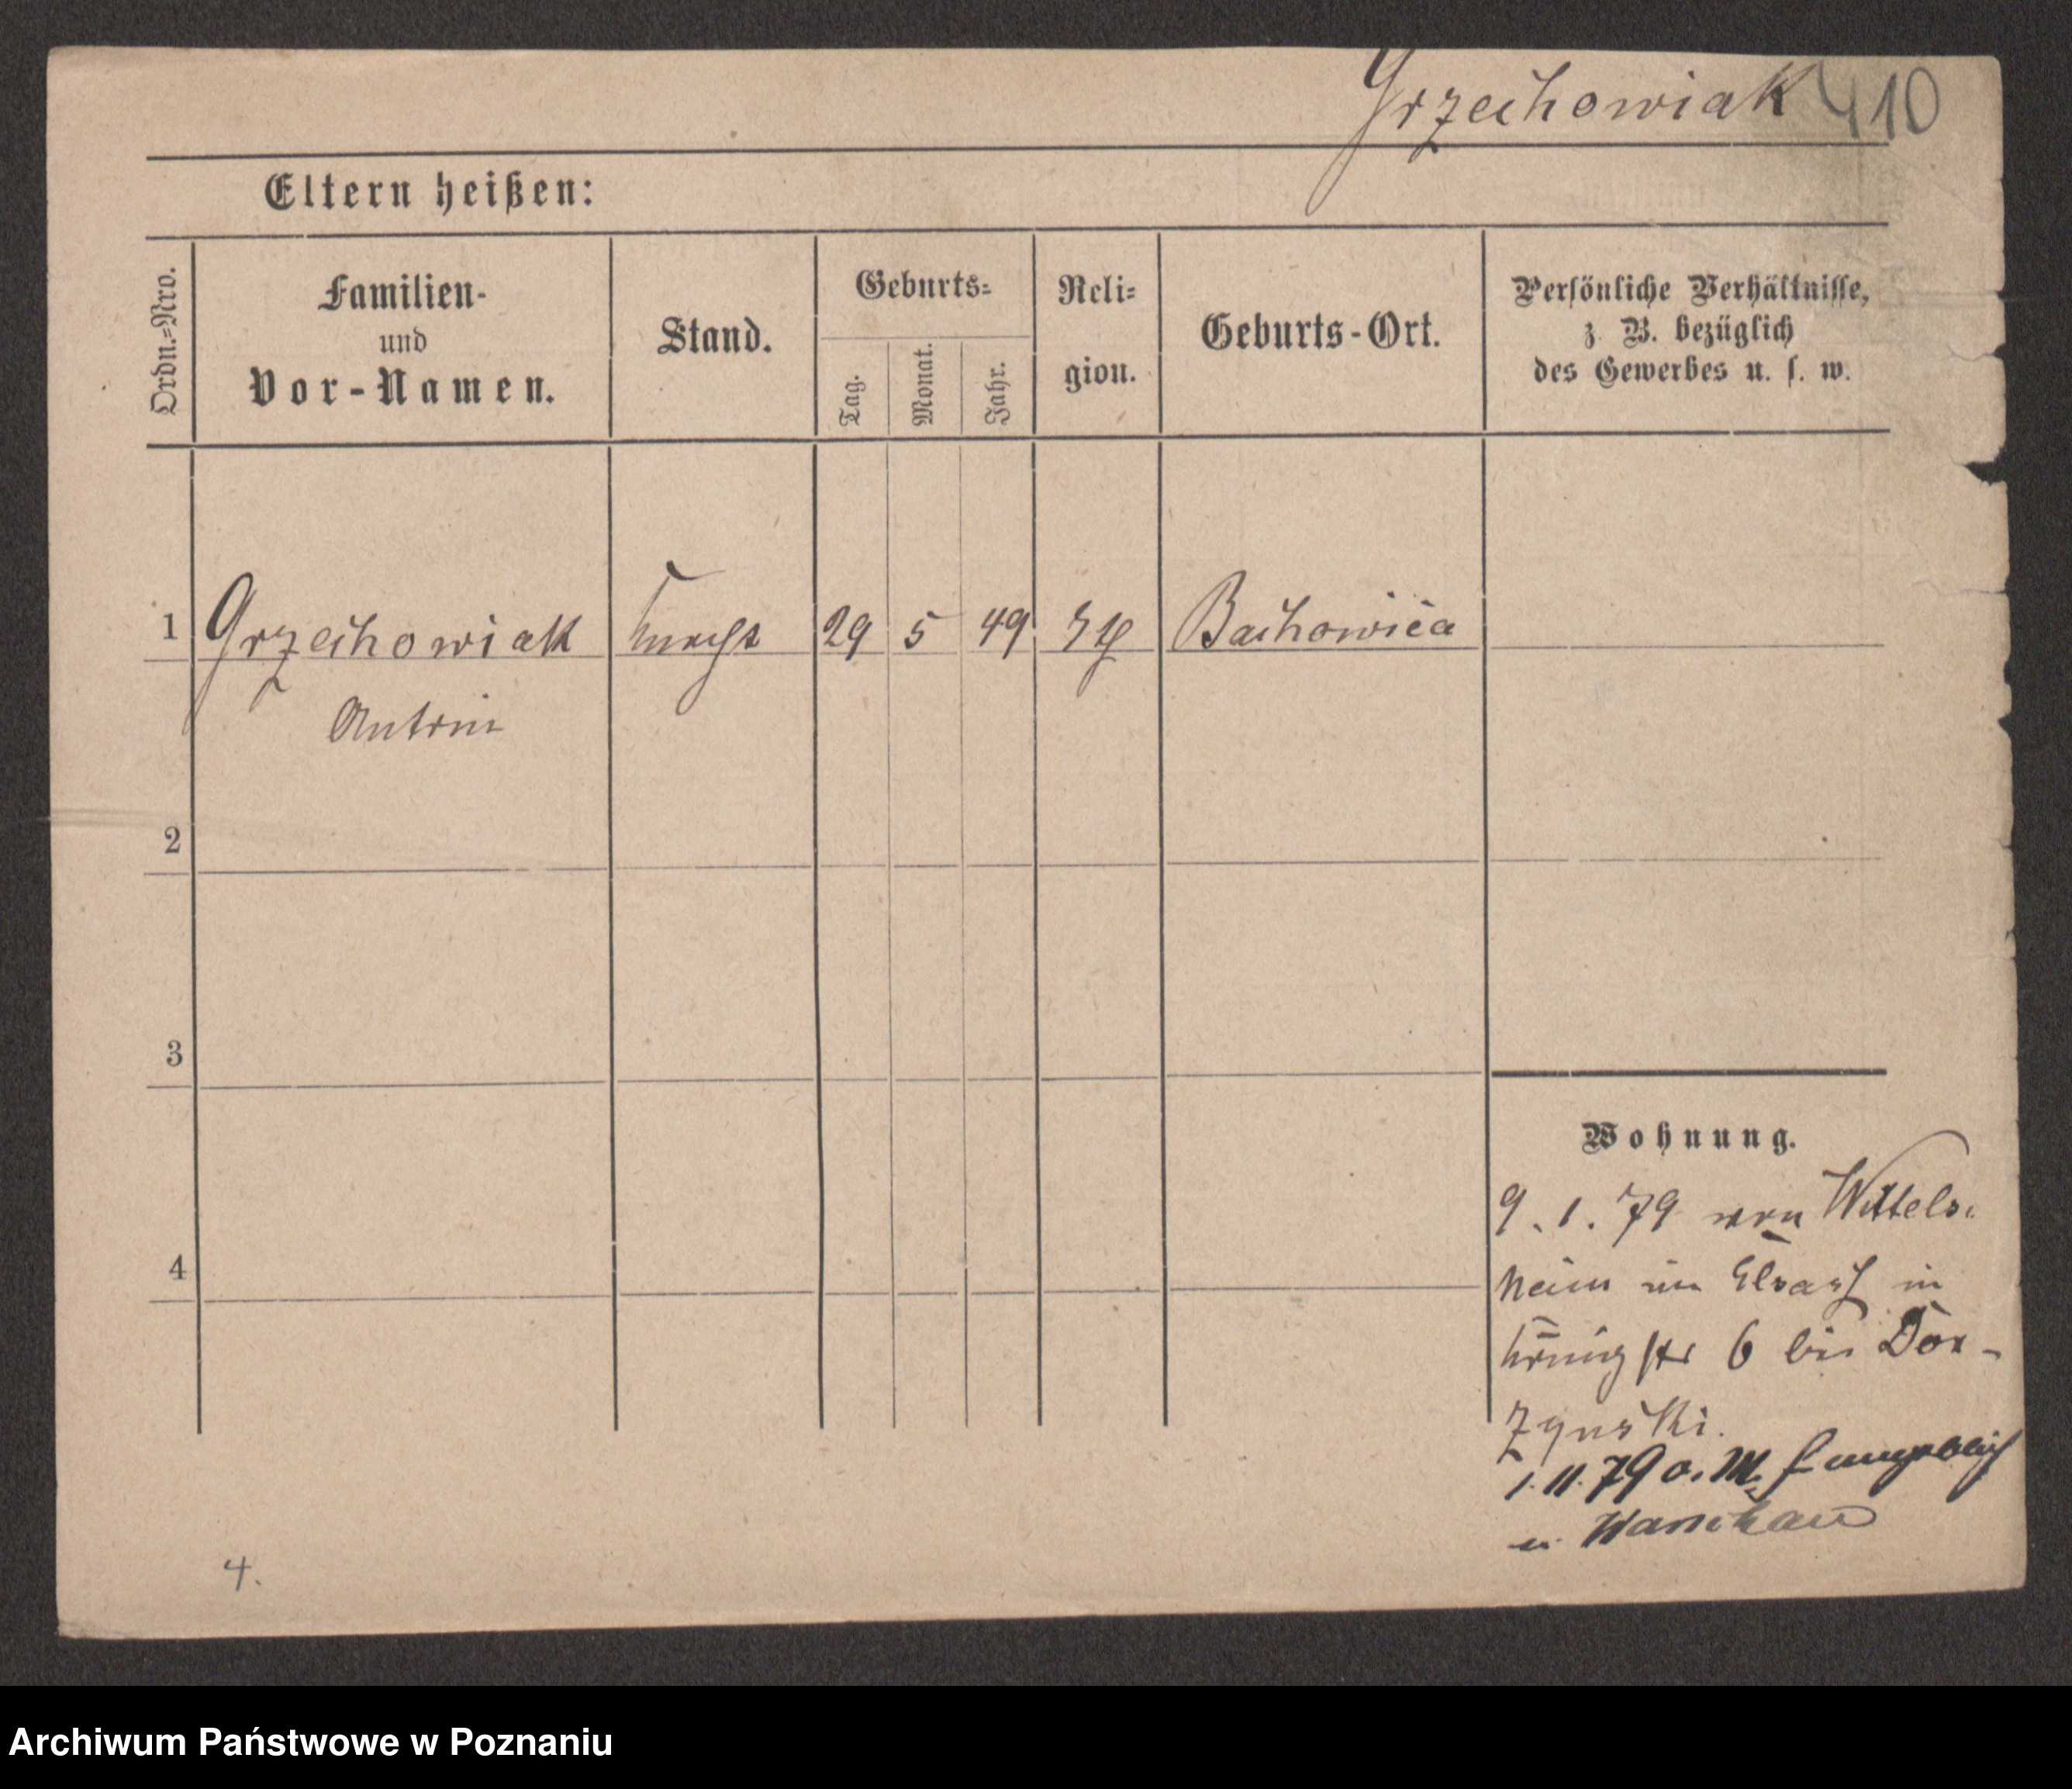 Grzechowiak 410
Eltern heißen:
Ordn.=Nro.
Familien-
und
Vor-Namen.
Stand.
Geburts=
Tag.
Monat.
Jahr.
Reli=
gion.
Geburts-Ort.
Persönliche Verhältnisse,
z. B. bezüglich
des Gewerbes u. s. w.
1 Grzechowiak Knecht 29 5 49 Bachowica
Anton
2
3
4
Wohnung.
9. 1. 79 von Wittels-
heim im Elsass in
Königstr 6 bei Dor-
zynski.
1. 11. 79 a. M.
n. Warschau
4.
Archiwum Państwowe w Poznaniu